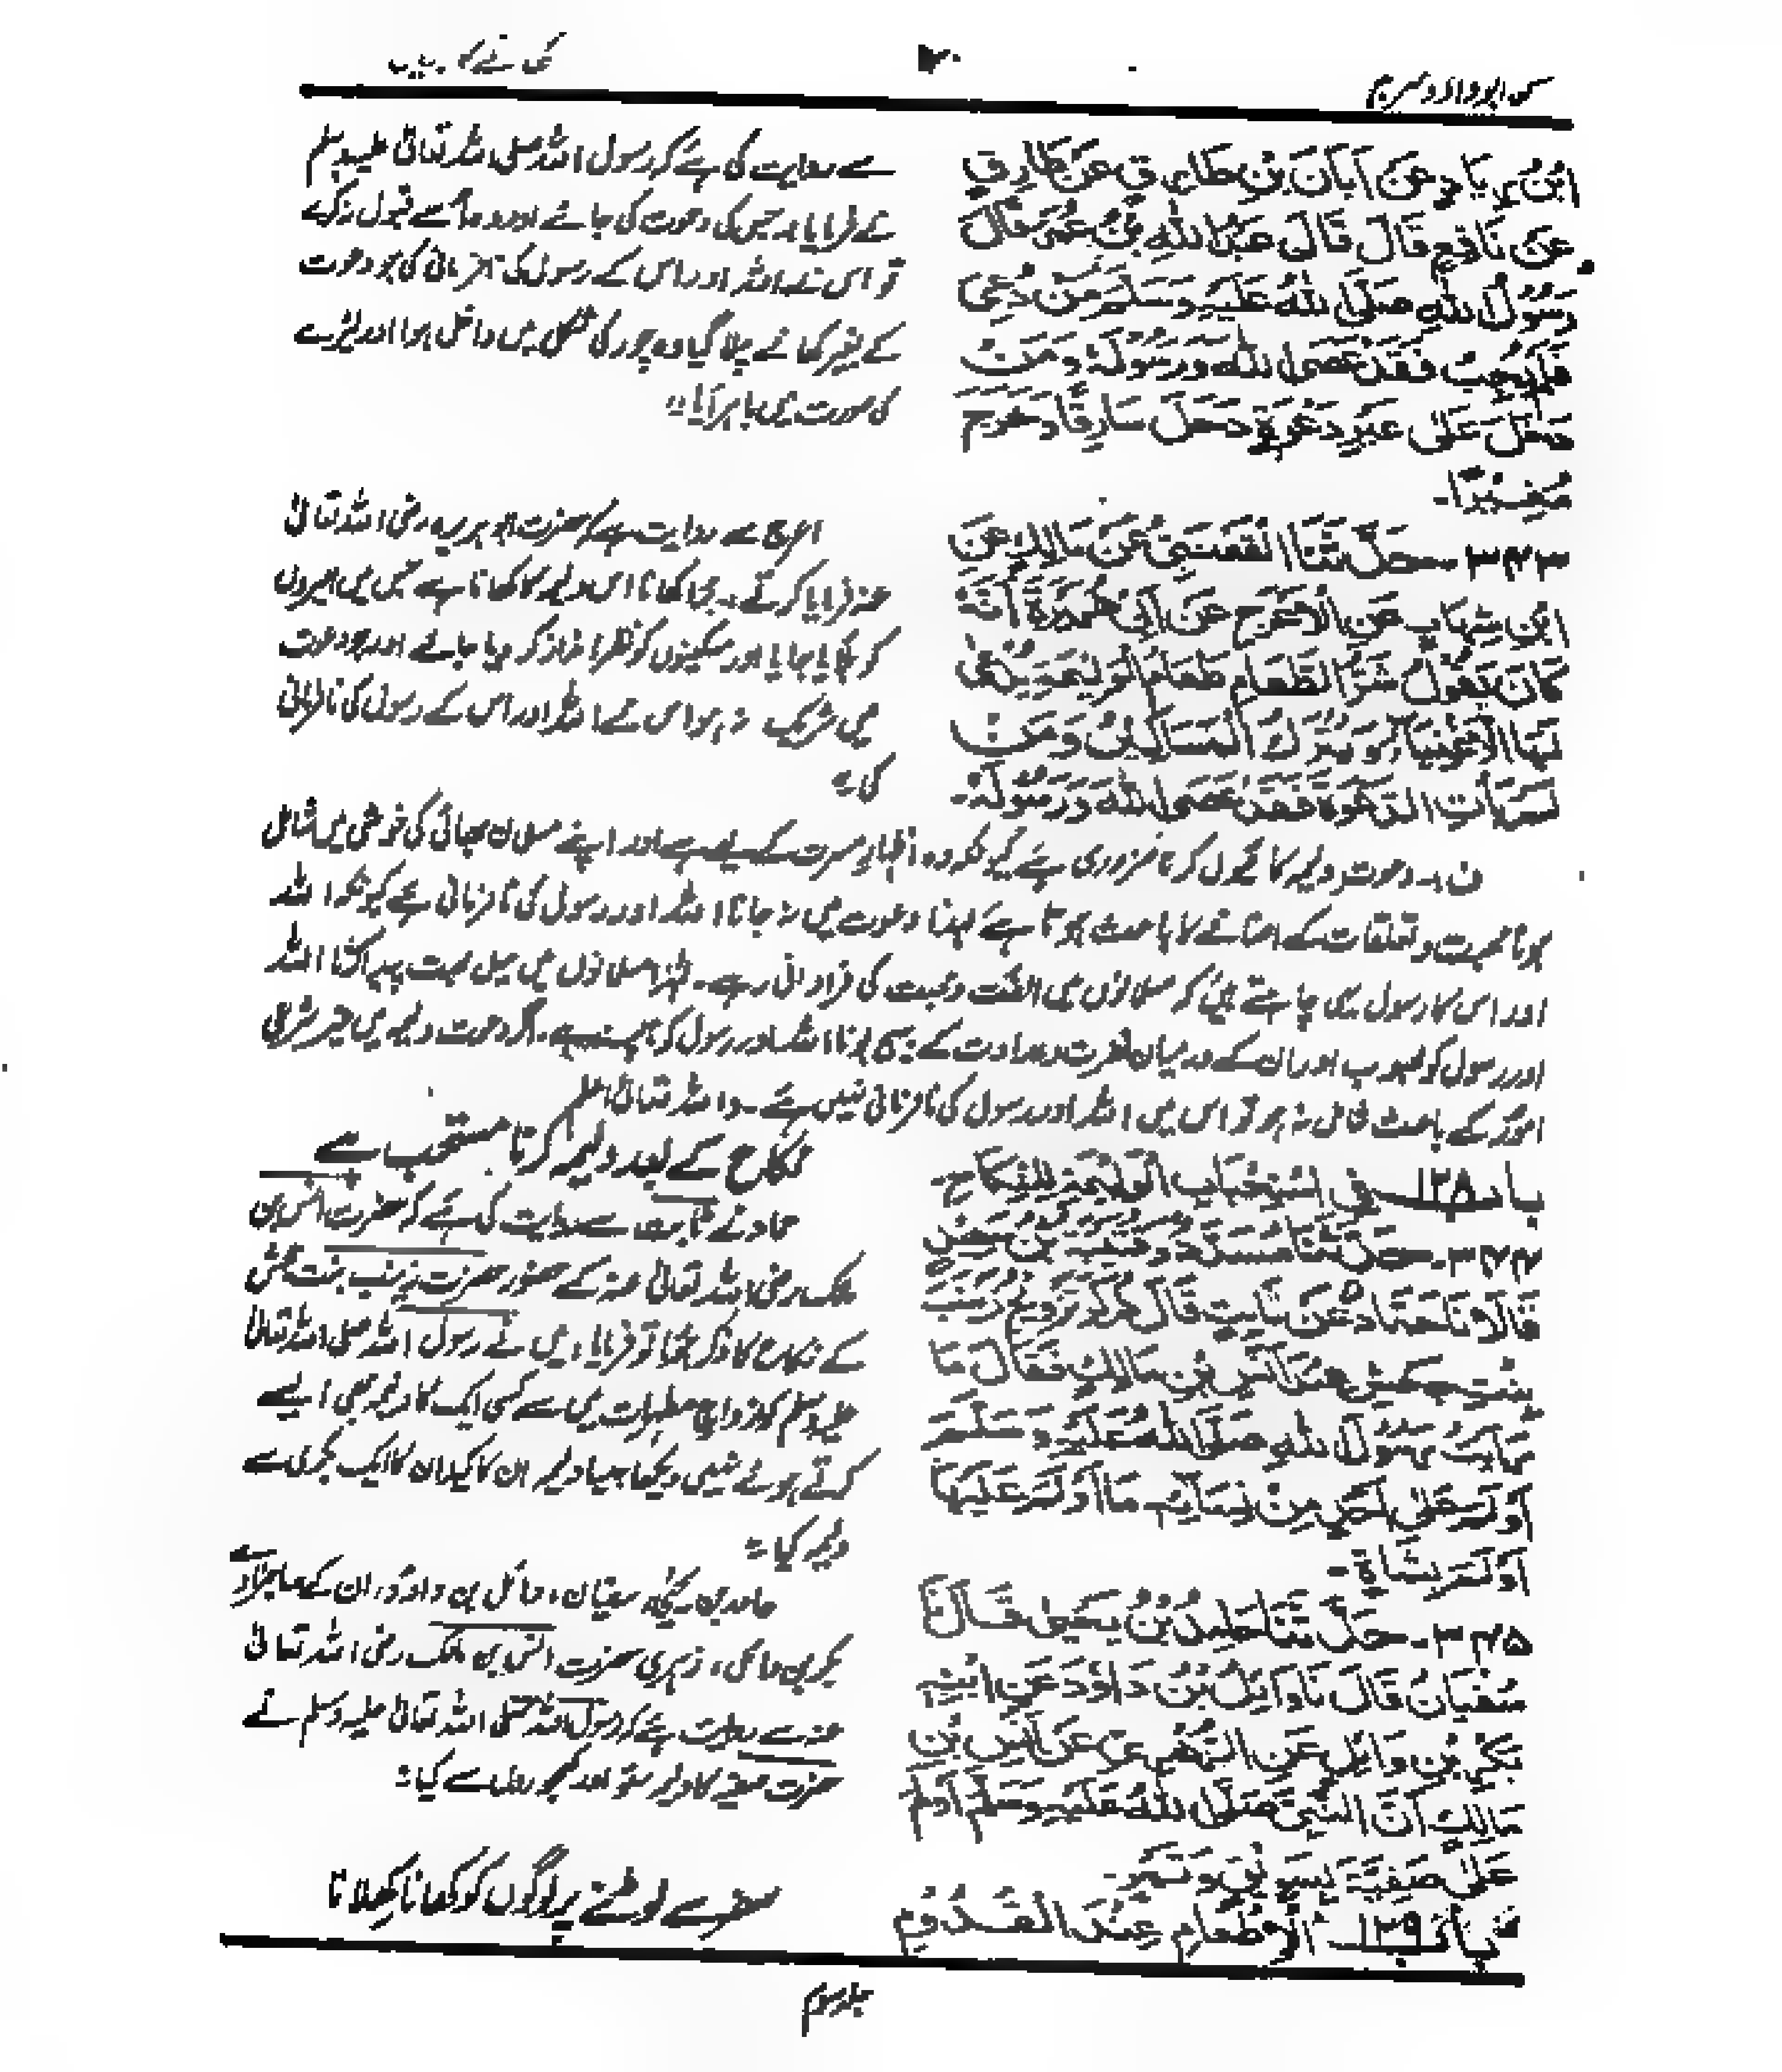 سنن ابوداؤد مترجم
٢٠
کھانے کا بیاب
ابْنُ زِيَادٍ عَنْ اَبَانَ بْنِ طَارِقٍ عَنْ طَارِقٍ
عَنْ نَافِعٍ قَالَ قَالَ عَبْدُ اللهِ بْنُ عُمَرَ قَالَ
رَسُوْلُ اللهِ صَلَّى اللهُ عَلَيْهِ وَسَلَّمَ مَنْ دُعِىَ
فَلَمْ يُجِبْ فَقَدْ عَصَى اللهَ وَرَسُوْلَهُ وَمَنْ
دَخَلَ عَلٰى غَيْرِ دَعْوَةٍ دَخَلَ سَارِقًا وَخَرَجَ
مُغِيْرًا۔
سے روایت کی ہے کہ رسول اللہ صلی اللہ تعالیٰ علیہ وسلم
نے فرمایا :۔ جس کی دعوت کی جائے اور وہ اُسے قبول نہ کرے
تو اس نے اللہ اور اس کے رسول کی نافرمانی کی جو دعوت
کے بغیر کھانے چلا گیا وہ چور کی شکل میں داخل ہوا اور لٹیرے
کی صورت میں باہر آیا ۔"
٣٤٣۔ حَدَّثَنَا الْقَعْنَبِىُّ عَنْ مَالِكٍ عَنِ
ابْنِ شِهَابٍ عَنِ الْاَعْرَجِ عَنْ اَبِىْ هُرَيْرَةَ اَنَّهُ
كَانَ يَقُوْلُ شَرُّ الطَّعَامِ طَعَامُ الْوَلِيْمَةِ يُدْعٰى
لَهَا الْاَغْنِيَاءُ وَيُتْرَكُ الْمَسَاكِيْنُ وَمَنْ
لَمْ يَأْتِ الدَّعْوَةَ فَقَدْ عَصَى اللهَ وَرَسُوْلَهُ۔
اعرج سے روایت ہے کہ حضرت ابوہریرہ رضی اللہ تعالیٰ
عنہ فرمایا کرتے :۔ بُرا کھانا اس ولیمہ کا کھانا ہے جس میں امیروں
کو بلایا جایا اور مسکینوں کو نظر انداز کر دیا جائے اور جو دعوت
میں شریک نہ ہو اس نے اللہ اور اس کے رسول کی نافرمانی
کی ۔"
ف :۔ دعوتِ ولیمہ کا قبول کرنا ضروری ہے کیونکہ وہ اظہارِ مسرت کے لیے ہے اور اپنے مسلمان بھائی کی خوشی میں شامل
ہونا محبت و تعلقات کے اضافے کا باعث ہوتا ہے لہٰذا دعوت میں نہ جانا اللہ اور رسول کی نافرمانی ہے کیونکہ اللہ
اور اس کا رسول یہی چاہتے ہیں کہ مسلمانوں میں الفت و محبت کی فراوانی رہے۔ لہٰذا مسلمانوں میں میل محبت پیدا کرنا اللہ
اور رسول کو محبوب اور ان کے درمیان نفرت و عداوت کے بیج بونا اللہ اور رسول کو ناپسند ہے۔ اگر دعوت ولیمہ میں غیر شرعی
امور کے باعث شامل نہ ہو تو اس میں اللہ اور رسول کی نافرمانی نہیں ہے ۔ واللہ تعالیٰ اعلم
بَابُ ١٢٨ فِى اسْتِحْبَابِ الْوَلِيْمَةِ لِلنِّكَاحِ۔
نکاح کے بعد ولیمہ کرنا مستحب ہے
٣٤٤۔ حَدَّثَنَا مُسَدَّدٌ وَقُتَيْبَةُ بْنُ سَعِيْدٍ
قَالَا نَا حَمَّادٌ عَنْ ثَابِتٍ قَالَ ذُكِرَ تَزْوِيْجُ زَيْنَبَ
بِنْتِ جَحْشٍ عِنْدَ اَنَسِ بْنِ مَالِكٍ فَقَالَ مَا
رَاَيْتُ رَسُوْلَ اللهِ صَلَّى اللهُ عَلَيْهِ وَسَلَّمَ
اَوْلَمَ عَلٰى اَحَدٍ مِنْ نِسَائِهٖ مَا اَوْلَمَ عَلَيْهَا
اَوْلَمَ بِشَاةٍ۔
حماد نے ثابت سے روایت کی ہے کہ حضرت انس بن
مالک رضی اللہ تعالیٰ عنہ کے حضور حضرت زینب بنت جحش
کے نکاح کا ذکر ہوا تو فرمایا ، میں نے رسول اللہ صلی اللہ تعالیٰ
علیہ وسلم کو ازواج مطہرات میں سے کسی ایک کا ولیمہ بھی ایسے
کرتے ہوئے نہیں دیکھا جیسا ولیمہ ان کا کیا۔ ان کا ایک بکری سے
ولیمہ کیا ۔"
٣٤٥۔ حَدَّثَنَا حَامِدُ بْنُ يَحْيٰى قَالَ نَا
سُفْيَانُ قَالَ نَا وَائِلُ بْنُ دَاؤُدَ عَنِ ابْنِهٖ
بَكْرِ بْنِ وَائِلٍ عَنِ الزُّهْرِىِّ عَنْ اَنَسِ بْنِ
مَالِكٍ اَنَّ النَّبِىَّ صَلَّى اللهُ عَلَيْهِ وَسَلَّمَ اَوْلَمَ
عَلٰى صَفِيَّةَ بِسَوِيْقٍ وَتَمْرٍ۔
حامد بن یحییٰ ، سفیان ، وائل بن داؤد ، ان کے صاجزادے
بکر بن وائل ، زہری حضرت انس بن مالک رضی اللہ تعالیٰ
عنہ سے روایت ہے کہ رسول اللہ صلی اللہ تعالیٰ علیہ وسلم نے
حضرت صفیہ کا ولیمہ ستو اور کھجوروں سے کیا ۔"
بَابُ ١٢٩ الْاِطْعَامِ عِنْدَ الْقُدُوْمِ
سفر سے لوٹنے پر لوگوں کو کھانا کھلانا
جلد سوم